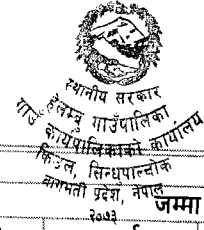 स्थानीय सरकार
हेलम्बु गाउँपालिका
गाउँ कार्यपालिकाको कार्यालय
किउल, सिन्धुपाल्चोक
बागमती प्रदेश, नेपाल
२०७३
जम्मा